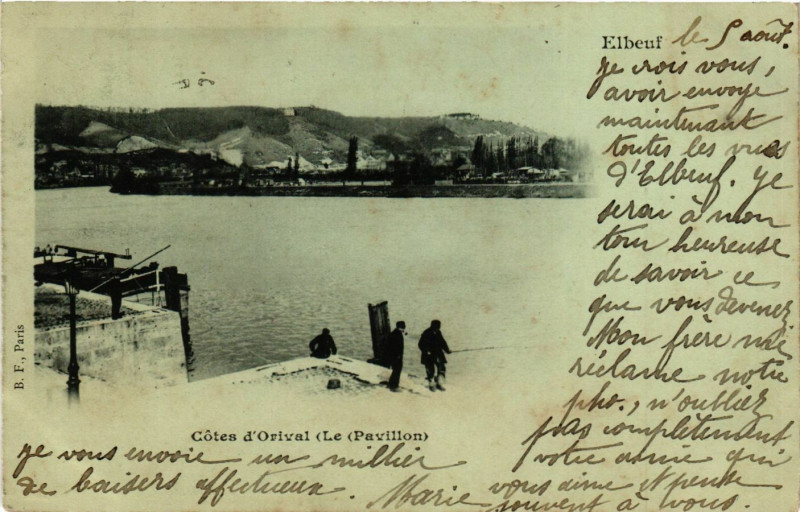 Elbeuf le 5 août.
Je crois vous,
avoir envoyé
maintenant
toutes les vues
d'Elbeuf. Je
serai à mon
tour heureuse
de savoir ce
que vous devenez
Mon frère me
réclame notre
pho., n'oubliez
pas complètement
votre amie qui
vous aime et pense
souvent à vous.
B. F., Paris
Côtes d'Orival (Le (Pavillon)
Je vous envoie un millier
de baisers affectueux. Marie